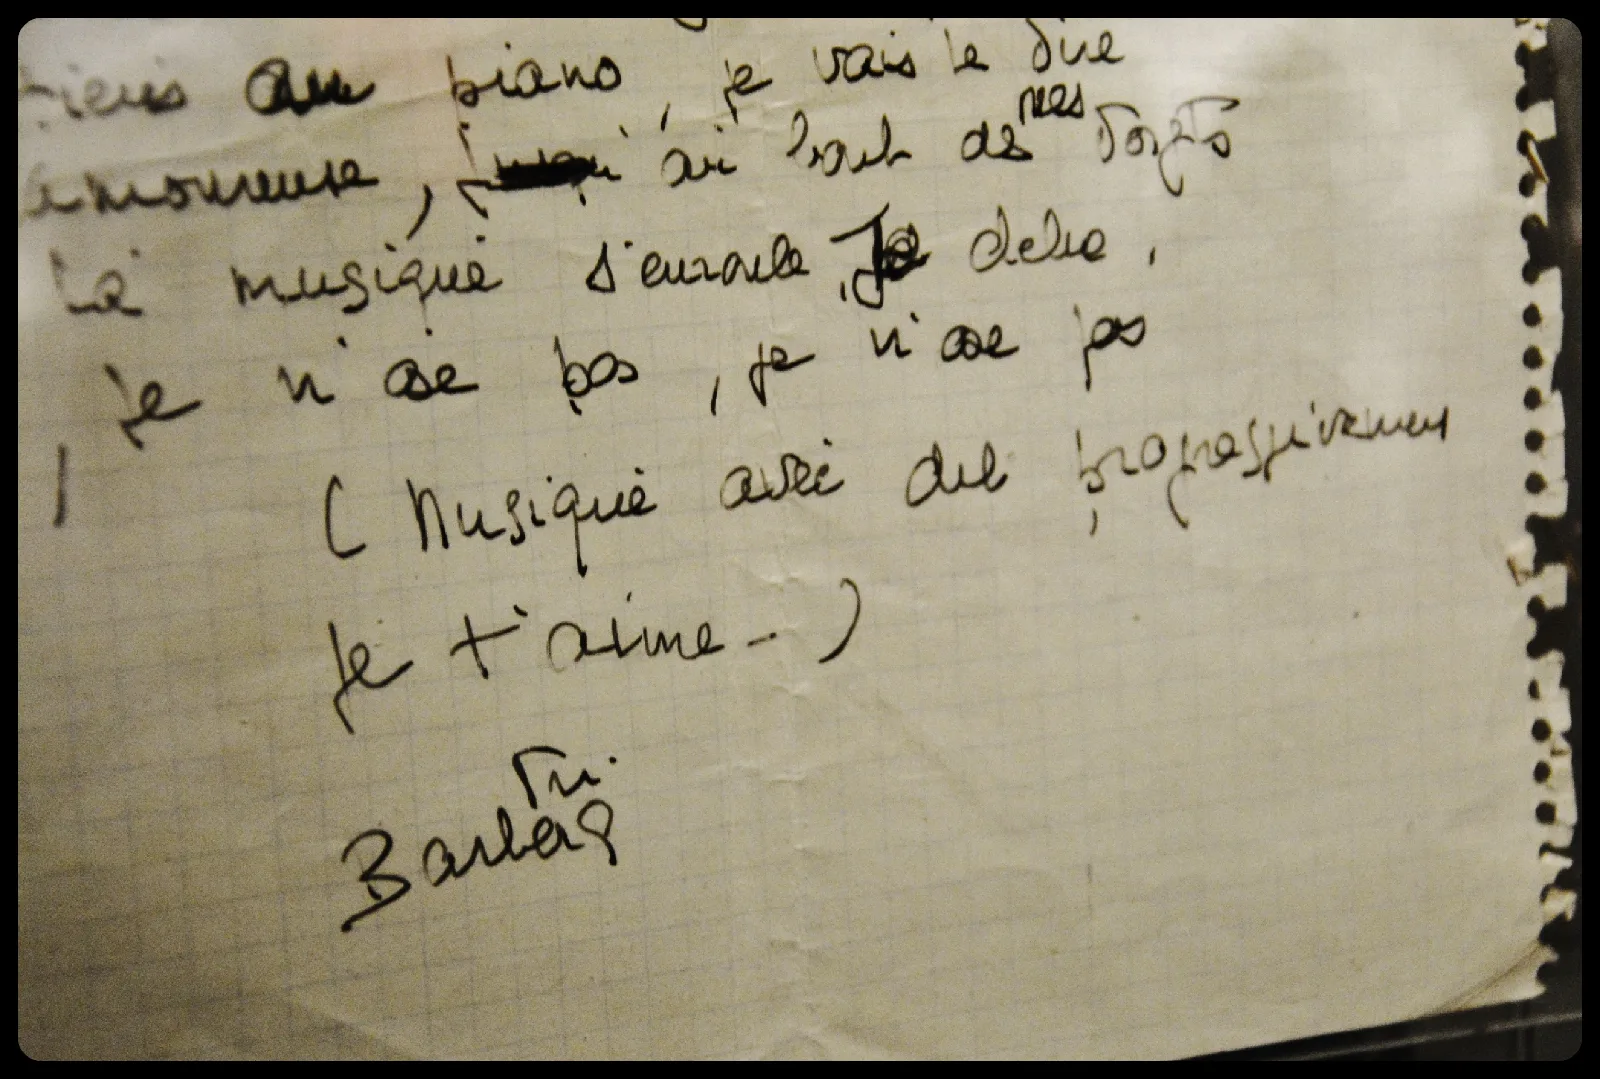 au piano, je vais le dire
amoureuse, jusqu'au bout de mes doigts
La musique s'enroule, Je
je n'ose pas, je n'ose pas
(Musique avec des progressivement
Je t'aime - )
Barbara